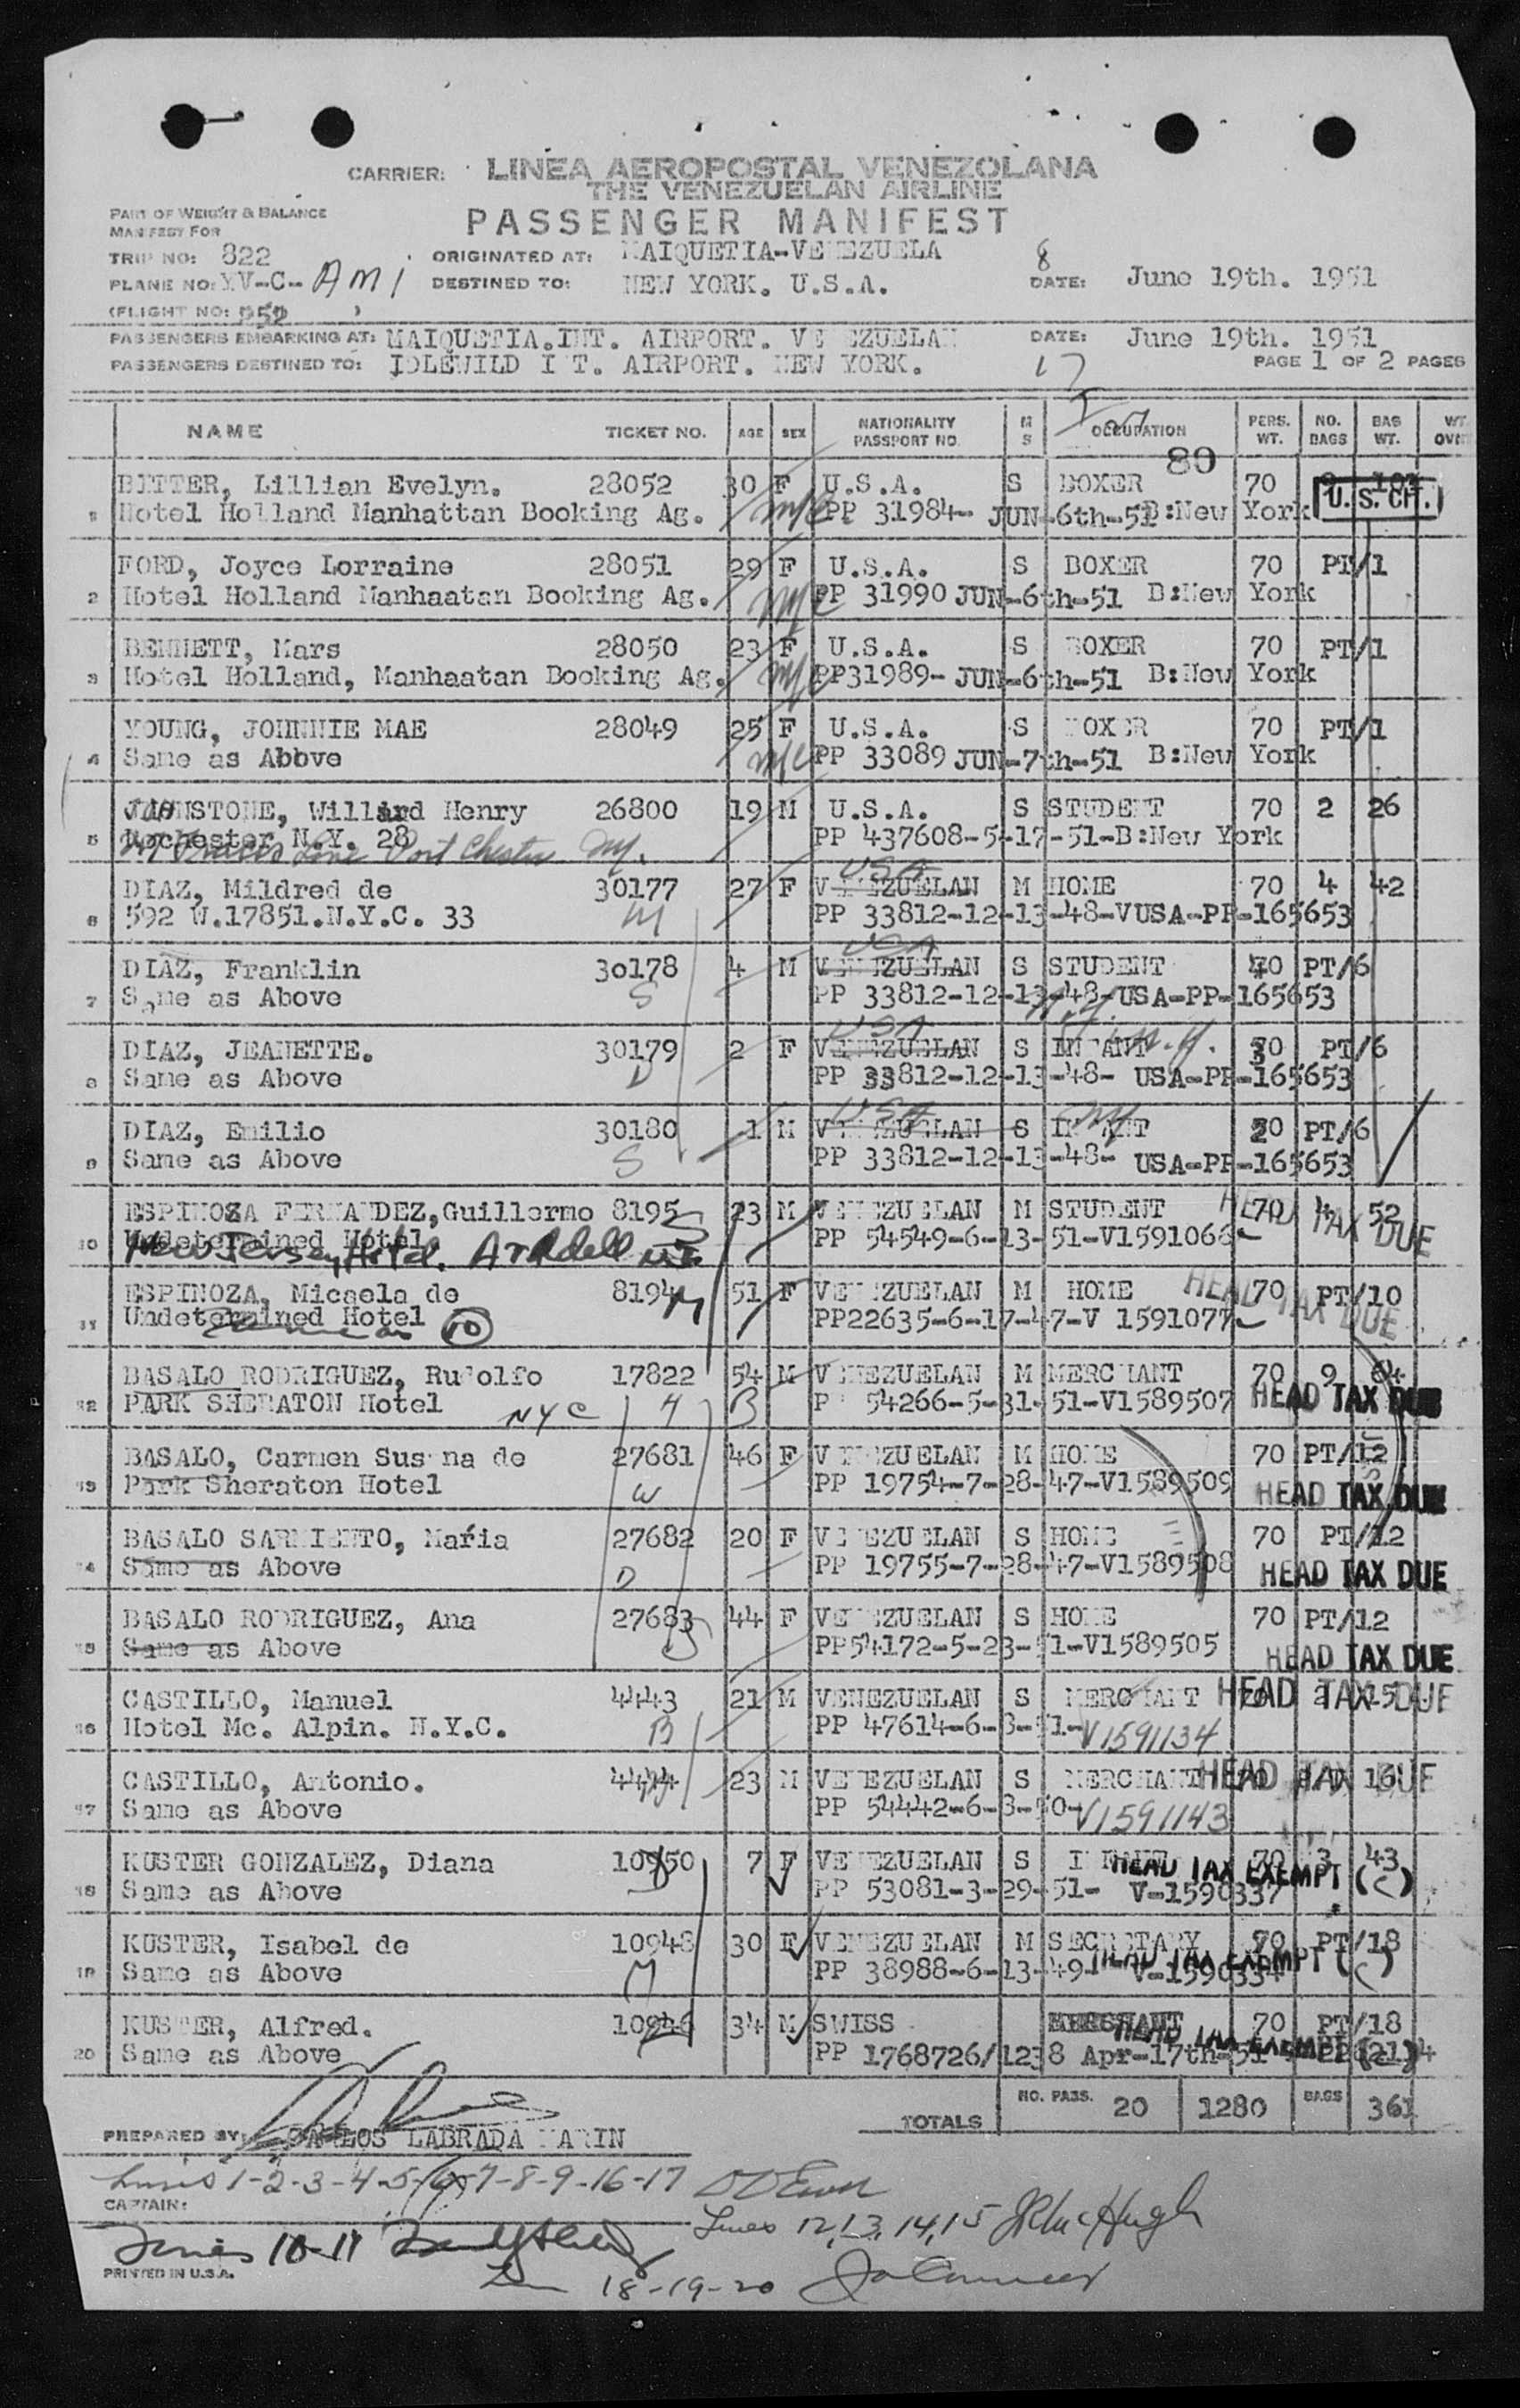 CARRIER: LINEA AEROPOSTAL VENEZOLANA
THE VENEZUELAN AIRLINE
PART OF WEIGHT & BALANCE
MANIFEST FOR
PASSENGER MANIFEST
TRIP NO: 822 ORIGINATED AT: MAIQUETIA-VENEZUELA 8
PLANE NO: YV-C- AMI DESTINED TO: NEW YORK. U.S.A. DATE: June 19th. 1951
(FLIGHT NO: 952 )
PASSENGERS EMBARKING AT: MAIQUETIA.INT. AIRPORT. VENEZUELAN DATE: June 19th. 1951
PASSENGERS DESTINED TO: IDLEWILD INT. AIRPORT. NEW YORK. 17 PAGE 1 OF 2 PAGES
NAME TICKET NO. AGE SEX NATIONALITY PASSPORT NO. M S OCCUPATION PERS. WT. NO. BAGS BAG WT. WT. OVR
80
BITTER, Lillian Evelyn. 28052 30 F U.S.A. S BOXER 70
1 Hotel Holland Manhattan Booking Ag. M/C PP 31984- JUN-6th-51 B:New York U.S. CIT.
FORD, Joyce Lorraine 28051 29 F U.S.A. S BOXER 70 PT/1
2 Hotel Holland Manhaatan Booking Ag. M/C PP 31990 JUN-6th-51 B:New York
BENNETT, Mars 28050 23 F U.S.A. S BOXER 70 PT/1
3 Hotel Holland, Manhaatan Booking Ag. M/C PP31989- JUN-6th-51 B:New York
YOUNG, JOHNNIE MAE 28049 25 F U.S.A. S BOXER 70 PT/1
4 Same as Abbve M/C PP 33089 JUN-7th-51 B:New York
JOHNSTONE, Willard Henry 26800 19 M U.S.A. S STUDENT 70 2 26
5 Rochester N.Y. 28 PP 437608-5-17-51-B:New York
Port Chester N.Y.
USA
DIAZ, Mildred de 30177 27 F VENEZUELAN M HOME 70 4 42
6 592 W.17851.N.Y.C. 33 M PP 33812-12-13-48-VUSA-PP-165653
USA
DIAZ, Franklin 30178 4 M VENEZUELAN S STUDENT 40 PT/6
7 Same as Above S PP 33812-12-13-48-USA-PP-165653
N.Y.
USA
DIAZ, JEANETTE. 30179 2 F VENEZUELAN S INFANT N.Y. 30 PT/6
8 Same as Above D PP 33812-12-13-48- USA-PP-165653
USA NY
DIAZ, Emilio 30180 1 M VENEZUELAN S INFANT 20 PT/6
9 Same as Above S PP 33812-12-13-48- USA-PP-165653
ESPINOSA FERNANDEZ,Guillermo 8195 S 23 M VENEZUELAN M STUDENT 70 4 52 HEAD TAX DUE
10 Undetermined Hotel PP 54549-6-13-51-V1591066
New Jersey Hotel.
ESPINOZA, Micaela de 8194 M 51 F VENEZUELAN M HOME 70 PT/10 HEAD TAX DUE
11 Undetermined Hotel PP22635-6-17-47-V 1591077
Same as 10
BASALO RODRIGUEZ, Rudolfo 17822 54 M VENEZUELAN M MERCHANT 70 9 64
12 PARK SHERATON Hotel NYC H B PP 54266-5-31-51-V1589507 HEAD TAX DUE
BASALO, Carmen Susana de 27681 46 F VENEZUELAN M HOME 70 PT/12
13 Park Sheraton Hotel W PP 19754-7-28-47-V1589509 HEAD TAX DUE
BASALO SARMIENTO, María 27682 20 F VENEZUELAN S HOME 70 PT/12
14 Same as Above D PP 19755-7-28-47-V1589508 HEAD TAX DUE
BASALO RODRIGUEZ, Ana 27683 44 F VENEZUELAN S HOME 70 PT/12
15 Same as Above S PP54172-5-23-51-V1589505 HEAD TAX DUE
CASTILLO, Manuel 4443 21 M VENEZUELAN S MERCHANT 70 HEAD TAX DUE
16 Hotel Mc. Alpin. N.Y.C. B PP 47614-6-8-51-V1591134
CASTILLO, Antonio. 4444 23 M VENEZUELAN S MERCHANT 70 16 HEAD TAX DUE
17 Same as Above PP 54442-6-8-50-V1591143
KUSTER GONZALEZ, Diana 10950 7 F VENEZUELAN S INFANT 70 3 43
18 Same as Above D PP 53081-3-29-51- V-1590337 HEAD TAX EXEMPT (C)
KUSTER, Isabel de 10948 30 F VENEZUELAN M SECRETARY 70 PT/18
19 Same as Above M PP 38988-6-13-49- V-1590334 HEAD TAX EXEMPT (C)
KUSTER, Alfred. 10946 34 M SWISS MERCHANT 70 PT/18
20 Same as Above PP 1768726/1238 Apr-17th-51 HEAD TAX EXEMPT
TOTALS NO. PASS. 20 1280 BAGS 361
PREPARED BY: CARLOS LABRADA MARIN
Lines 1-2-3-4-5-6-7-8-9-16-17
CAPTAIN:
Lines 12,13,14,15 McHugh
Lines 10-11
PRINTED IN U.S.A.
18-19-20